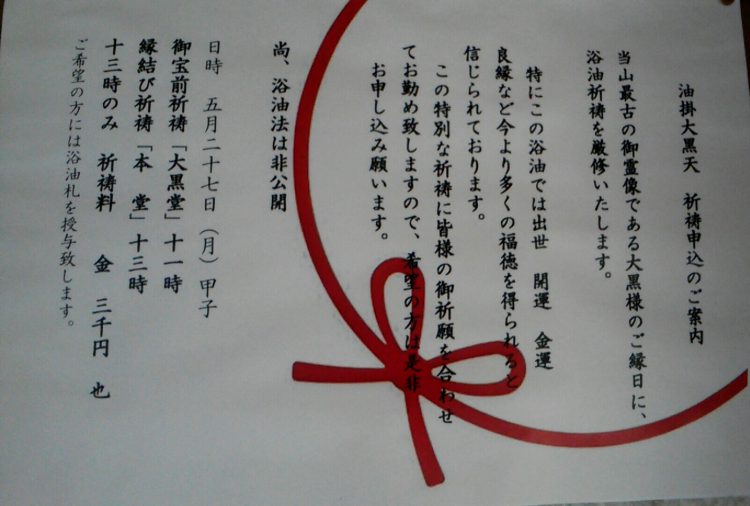 油掛大黒天　祈祷申込のご案内
当山最古の御霊像である大黒様のご縁日に、
浴油祈祷を厳修いたします。
特にこの浴油では出世　開運　金運
良縁など今より多くの福徳を得られると
信じられております。
この特別な祈祷に皆様の御祈願を合わせ
てお勤め致しますので、希望の方は是非
お申し込み願います。
尚、浴油法は非公開
日時　五月二十七日（月）甲子
御宝前祈祷「大黒堂」十一時
縁結び祈祷「本　堂」十三時
十三時のみ　祈祷料　金　三千円　也
ご希望の方には浴油札を授与致します。